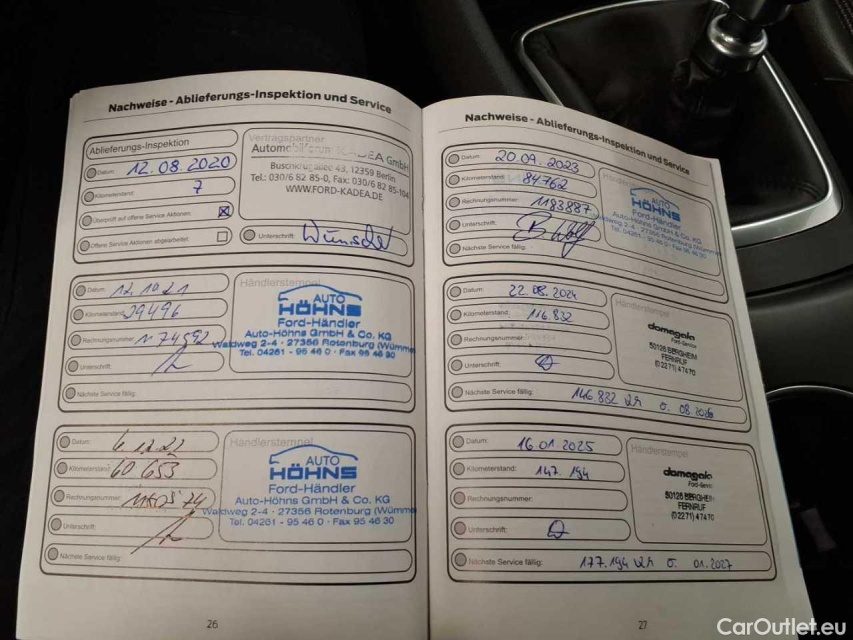 Nachweise - Ablieferungs-Inspektion und Service
Ablieferungs-Inspektion
Datum: 12.08.2020
Kilometerstand: 7
Überprüft auf offene Service Aktionen:
Offene Service Aktionen abgearbeitet:
Vertragspartner
KADEA GmbH
43, 12359 Berlin
Tel.: 030/6 82 85-0, Fax: 030/6 82 85-104
WWW.FORD-KADEA.DE
Unterschrift:
Datum: 12.10.21
Kilometerstand: 39496
Rechnungsnummer:
Unterschrift:
Nächste Service fällig:
Händlerstempel
AUTO
HÖHNS
Ford-Händler
Auto-Höhns GmbH & Co. KG
Waldweg 2-4 · 27356 Rotenburg (Wümme
Tel. 04261 - 95 46 0 · Fax 95 46 30
Datum: 6.12.22
Kilometerstand: 60 653
Rechnungsnummer:
Unterschrift:
Nächste Service fällig:
Händlerstempel
AUTO
HÖHNS
Ford-Händler
Auto-Höhns GmbH & Co. KG
Waldweg 2-4 · 27356 Rotenburg (Wümm
Tel. 04261 - 95 46 0 · Fax 95 46 30
26
Nachweise - Ablieferungs-Inspektion und Service
Datum: 20.09.2023
Kilometerstand: 84762
Rechnungsnummer: 1183887
Unterschrift:
Nächste Service fällig:
Händlerstempel
AUTO
HÖHNS
Ford-Händler
Auto-Höhns GmbH & Co. KG
Waldweg 2-4 · 27356 Rotenburg (Wümme
Tel. 04261 - 95 46 0 · Fax 95 46 30
Datum: 22.08.2024
Kilometerstand: 116.832
Rechnungsnummer:
Unterschrift:
Nächste Service fällig: 146.832 km o. 08.2026
Händlerstempel
domagala
Ford-Service
50126 BERGHEIM
FERNRUF
(02271) 47470
Datum: 16.01.2025
Kilometerstand: 147.194
Rechnungsnummer:
Unterschrift:
Nächste Service fällig: 177.194 km o. 01.2027
Händlerstempel
domagala
Ford-Servic
50126 BERGHEIM
FERNRUF
(02271) 47470
27
CarOutlet.eu